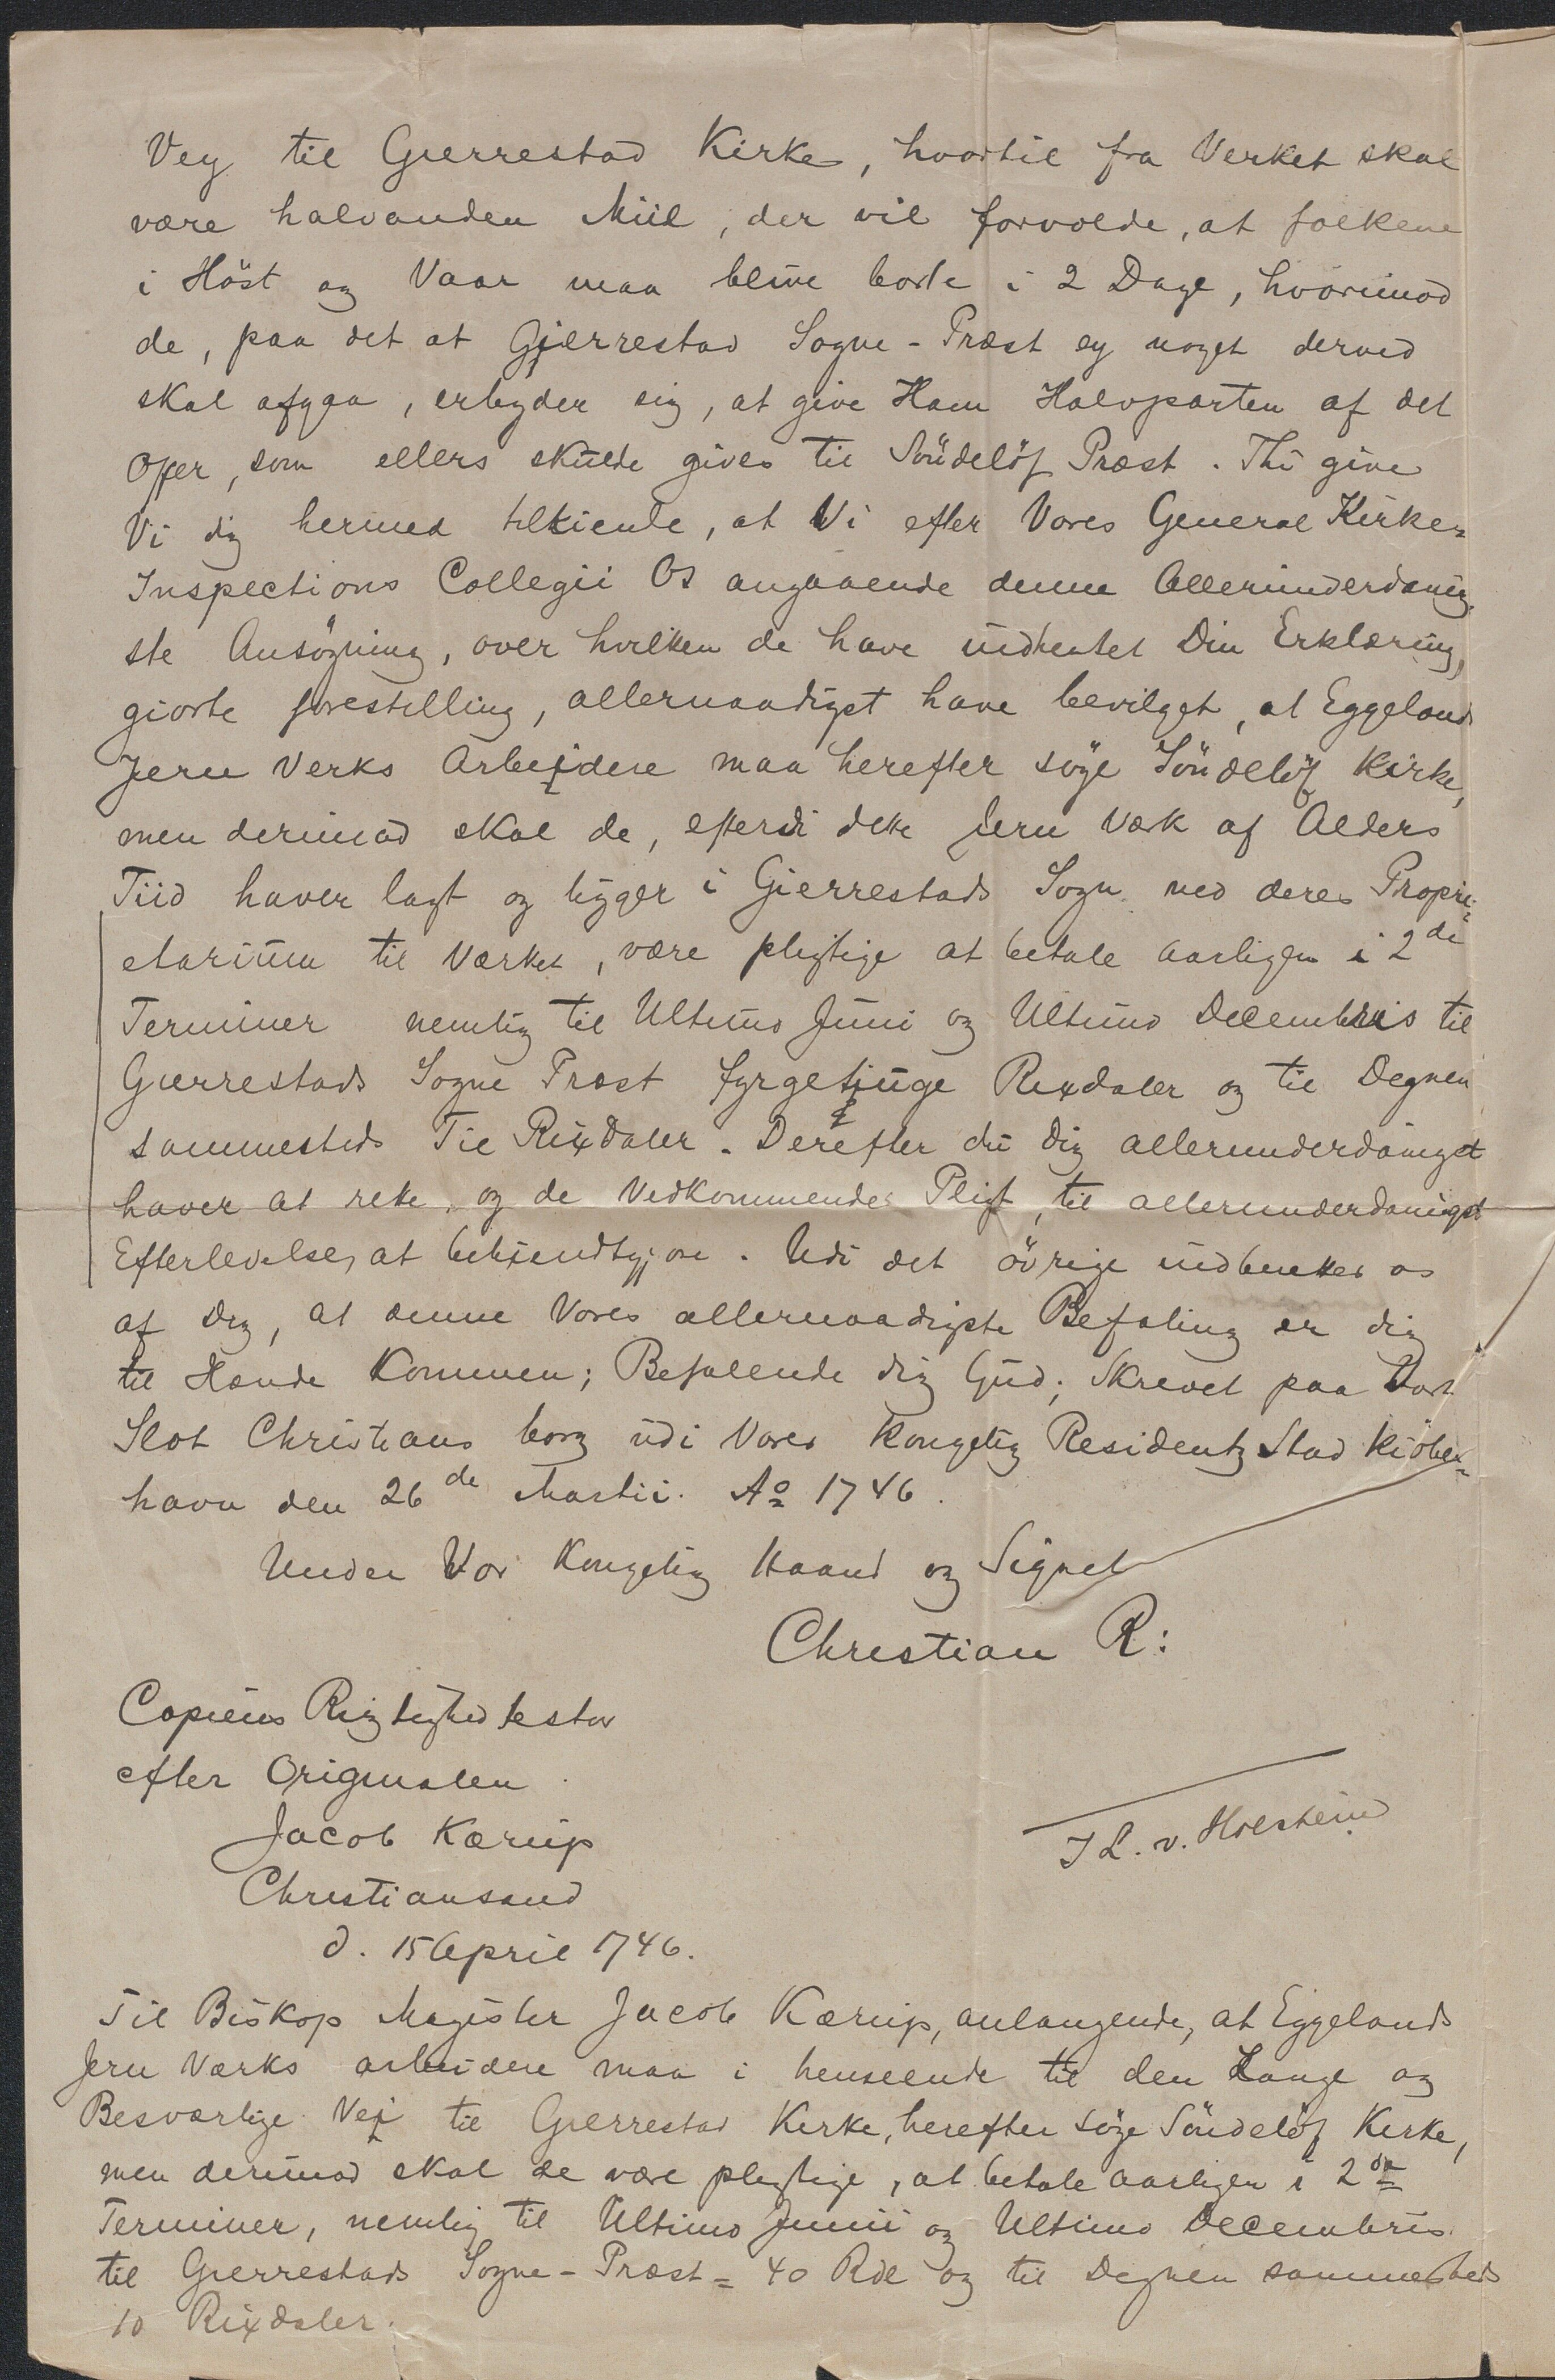 Vey til Gierrestad Kirke, hvortil fra Verket skal
være halvanden Miil, der vil forvolde, at folkene
i Höst og Vaar maa blive borte i 2 Dage, hvorimod
de, paa det at Gjerrestad Sogne-Præst ey noget derved
skal afgaa, erbyder sig, at give Ham Halvparten af det
Offer, som ellers skulde gives til Söndelöf Præst. Thi give
Vi dig hermed tilkiende, at Vi efter Vores General Kirke=
Inspections Collegii Os angaaende denne Allerunderdanig,
ste Ansögning, over hvilken de have indhentet Din Erklæring,
giorte forestilling, allernaadigst have bevilget, at Eggelands
Jern Verks Arbejdere maa herefter söge Söndelöf Kirke,
men derimod skal de, efterdi dette Jern Værk af Alders
Tiid haver lagt og ligger i Gierrestads Sogn med deres Propri=
etarium til Værket, være pligtige at betale aarligen i 2de
Terminer nemlig til Ultimo Juni og Ultimo Decembris til
Gierrestads Sogne Præst fyrgetiuge Rixdaler og til Degnen
sammesteds Tie Rixdaler. Derefter du Dig allerunderdanigst
haver at rette, og de Vedkommende Pligt, til allerunderdanigst
Efterlevelse, at bekiendtgjøre. Udi det övrige indbenkes os
af Dig, at denne Vores allernaadigste Befaling er dig
til Hænde Kommen; Befalende dig Gud; Skrevet paa Vort
Slot Christians borg udi Vores Kongelig Residentz Stad Kiöben=
havn den 26de Martii. Ao 1746.
Under Vor Kongelig Haand og Signet
Christian R:
Copiens Rigtighed testor
efter Originalen
Jacob Kærup
Christiansand
d. 15 April 1746.
J L. v. Holstein
Til Biskop Magister Jacob Kærup, anlangende, at Eggelands
Jern Værks arbeidere maa i henseende til den Lange og
Besværlige Vej til Gierrestad Kirke, herefter söge Söndelöf Kirke,
men derimod skal de være pligtige, at betale aarligen i 2de
Terminer, nemlig til Ultimo Junii og Ultimo Decembris
til Gierrestads Sogne-Præst = 40 Rdl og til Degnen sammesteds
10 Rixdaler.